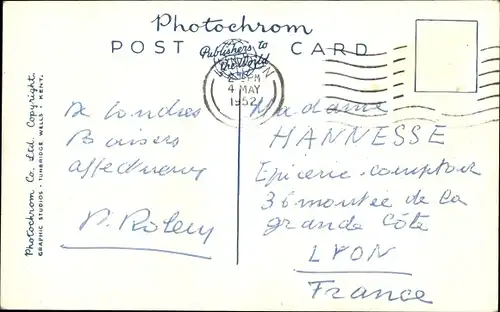 Photochrom
POST CARD
Publishers to
the World
LONDON
2 PM
4 MAY
1952
Photochrom Co. Ltd. Copyright.
GRAPHIC STUDIOS - TUNBRIDGE WELLS - KENT.
De Londres
Baisers
affectueux
Madame
HANNESSE
Epicerie-comptoir
36 montée de la
grande Côte
LYON
France